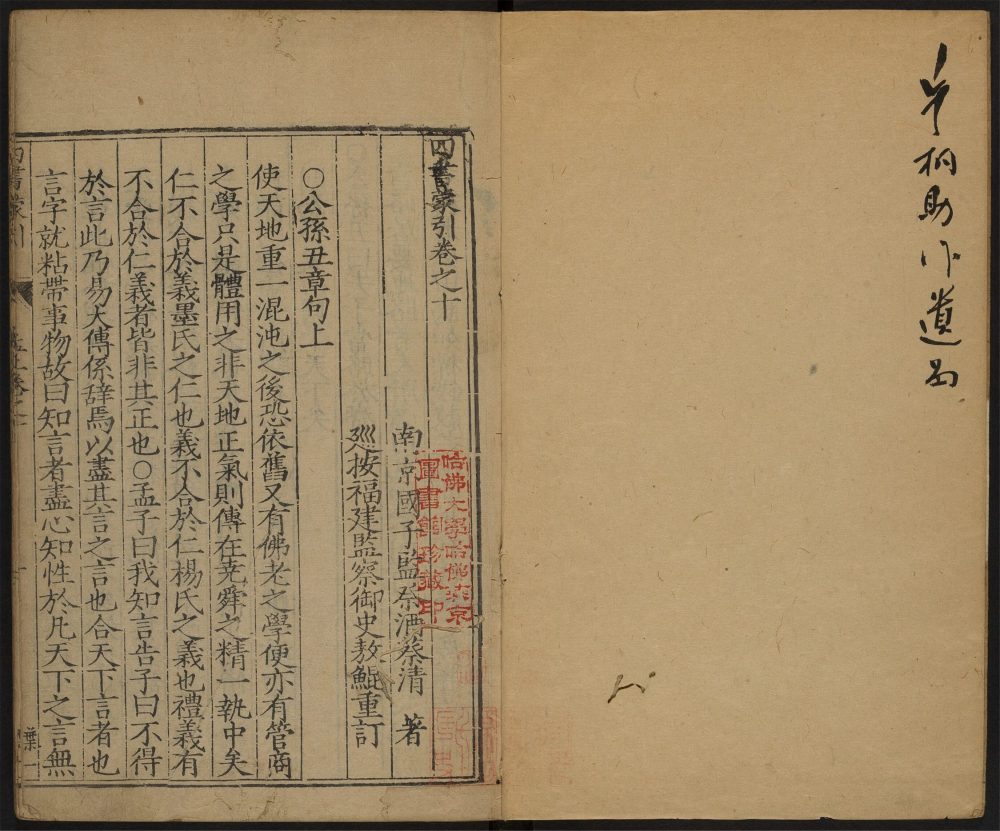 桐助作遺
四書蒙引卷之十
南京國子監祭酒蔡清 著
廵按福建監察御史敖鯤重訂
○公孫丑章句上
使天地重一混沌之後恐依舊又有佛老之學便亦有管商
之學只是體用之非天地正氣則傳在堯舜之精一執中矣
仁不合於義墨氏之仁也義不合於仁楊氏之義也禮義有
不合於仁義者皆非其正也○孟子曰我知言告子曰不得
於言此乃易大傳係辭焉以盡其言之言也合天下言者也
言字就粘帶事物故曰知言者盡心知性於凡天下之言無
四書蒙引
葉一
哈佛大學哈佛燕京
圖書館珍藏印